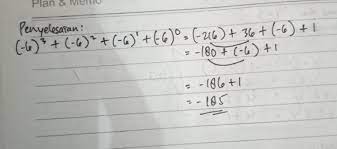 Plan & Memo
Penyelesaian :
(-6)³ + (-6)² + (-6)¹ + (-6)⁰ = (-216) + 36 + (-6) + 1
= -180 + (-6) + 1
= -186 + 1
= -185